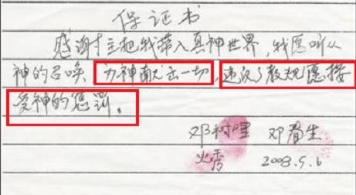 保证书
感谢主把我带入真神世界，我愿听从
神的召唤 为神献出一切，违反了教规愿接
受神的惩罚。
邓 邓春生
火秀 2008.5.6